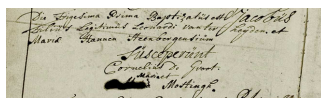 Die Trigesima Prima Baptizatus est Jacobus
filius Legitimus Leonardi van der Heijden, et
Maria Haanen Heenbergensium
Susceperunt
Cornelius De Groot
et
Maria Mostingh